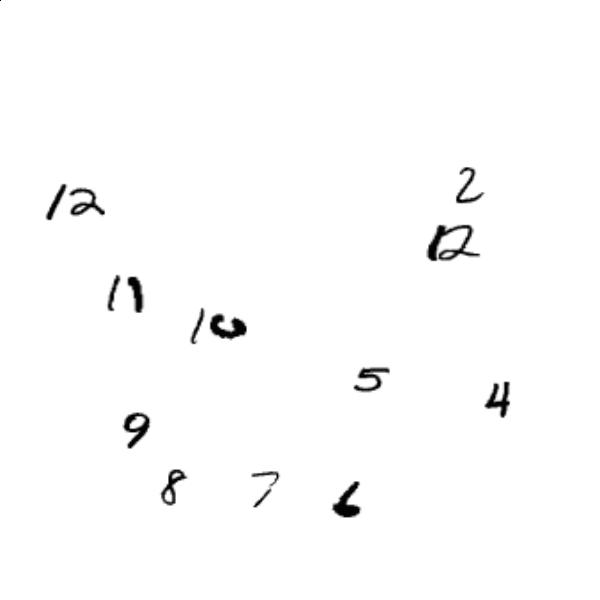 2
12 12
11
10
5
4
9
8 7 6